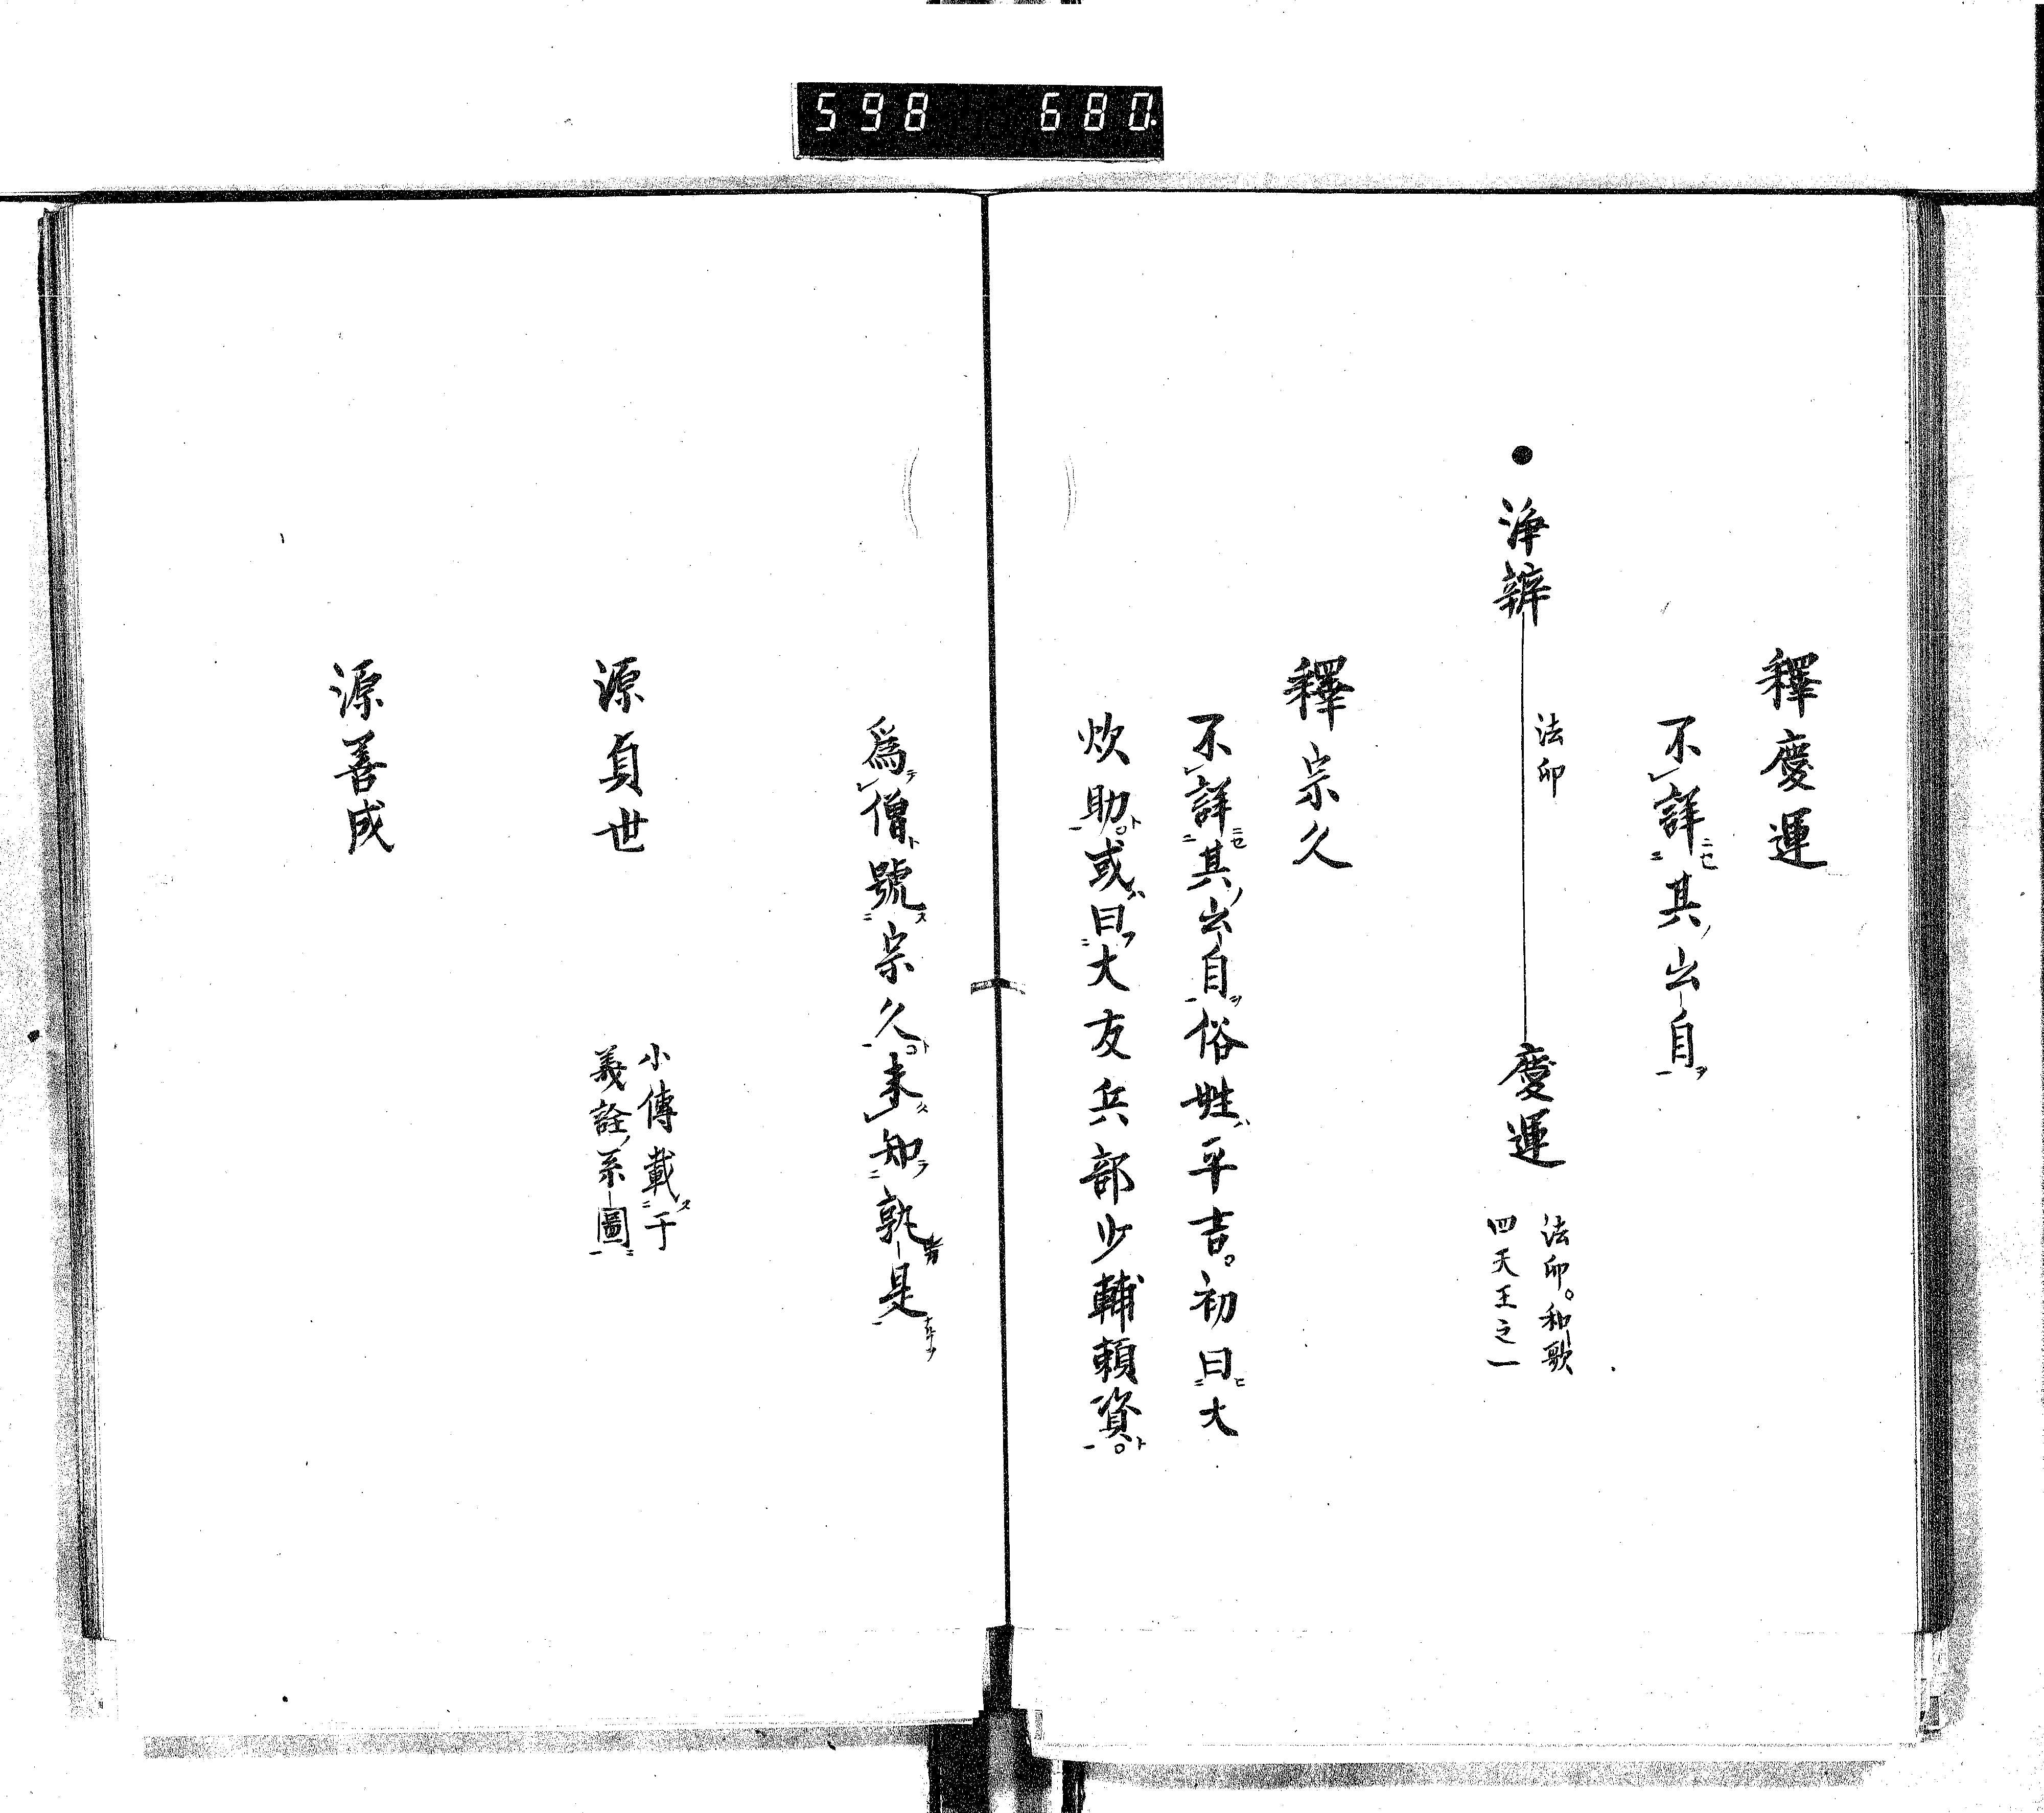 598 680.
釋慶運
不詳其出自
●淨辨 法印 慶運 法印。和歌
四天王之一
釋宗久
不詳其出自俗姓平吉。初曰大
炊助或曰大友兵部少輔頼資
爲僧號宗久未知孰是
源貞世 小傳載于
義詮系圖
源善成